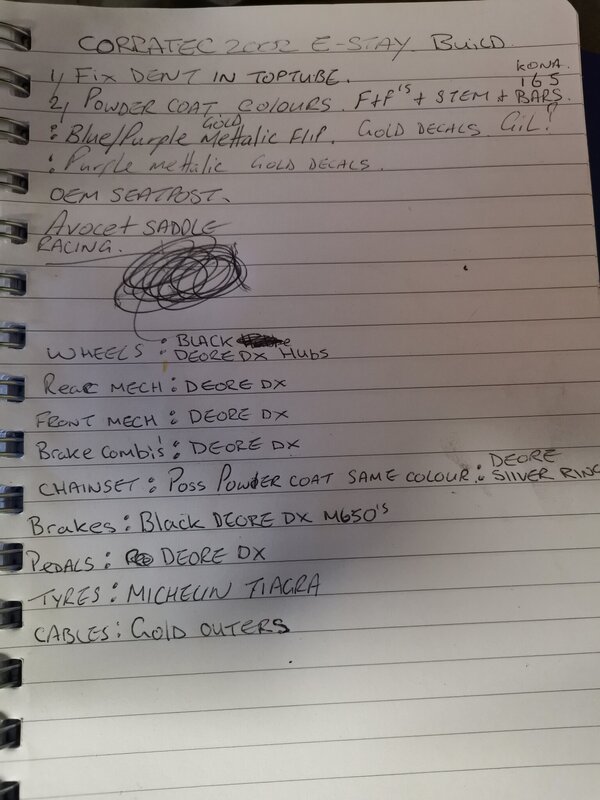 CORRATEC 2002 E-STAY BUILD.
1, FIX DENT IN TOPTUBE.
KONA.
165
2, POWDER COAT COLOURS. F+F'S + STEM + BARS.
: Blue/Purple GOLD Mettalic FLIP. GOLD DECALS. GIL?
: Purple mettalic GOLD DECALS.
OEM SEATPOST.
Avocet SADDLE
RACING.
WHEELS : BLACK
: DEORE DX HUBS
Rear MECH : DEORE DX
FRONT MECH : DEORE DX
Brake Combi's : DEORE DX
CHAINSET : Poss Powder COAT SAME COLOUR : DEORE SILVER RING
Brakes : Black DEORE DX M650'S
PEDALS : DEORE DX
TYRES : MICHELIN TIAGRA
CABLES : Gold OUTERS